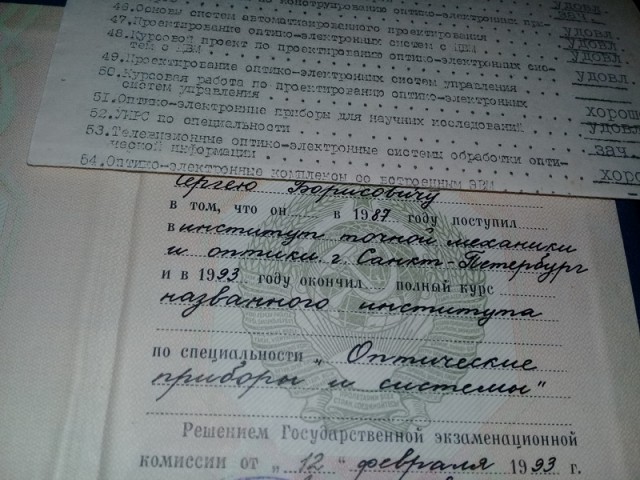 конструированию оптико-электронных при-
зач.
46.Основы систем автоматизированного проектирования
удовл
47.Проектирование оптико-электронных систем с ЦВМ
удовл
48.Курсовой проект по проектированию оптико-электронных сис-
тем с ЦВМ
удовл
49.Проектирование оптико-электронных систем управления
удовл
50.Курсовая работа по проектированию оптико-электронных
систем управления
51.Оптико-электронные приборы для научных исследований
хорош
52.УИРС по специальности
удовл
53.Телевизионные оптико-электронные системы обработки опти-
ческой информации
зач.
54.Оптико-электронные комплексы со встроенным ЭВМ
хоро
Сергею Борисовичу
в том, что он в 1987 году поступил
в институт точной механики
и оптики г. Санкт-Петербург
и в 1993 году окончил полный курс
названного института
по специальности „Оптические
приборы и системы"
Решением Государственной экзаменационной
комиссии от „12" февраля 1993 г.